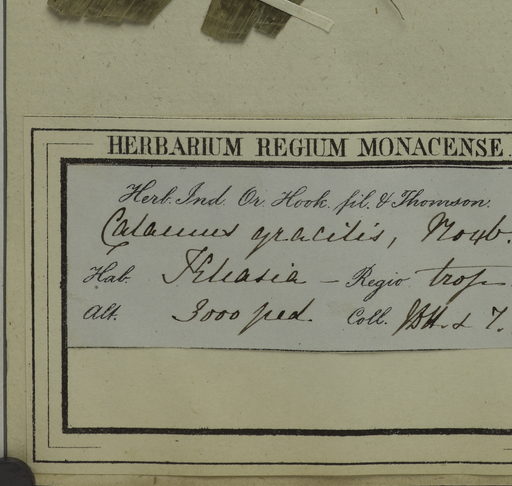 HERBARIUM REGIUM MONACENSE.
Herb. Ind. Or. Hook. fil. & Thomson.
Calamus gracilis, Roxb.
Hab. Khasia — Regio trop
Alt. 3000 ped. Coll. JDH. & T.